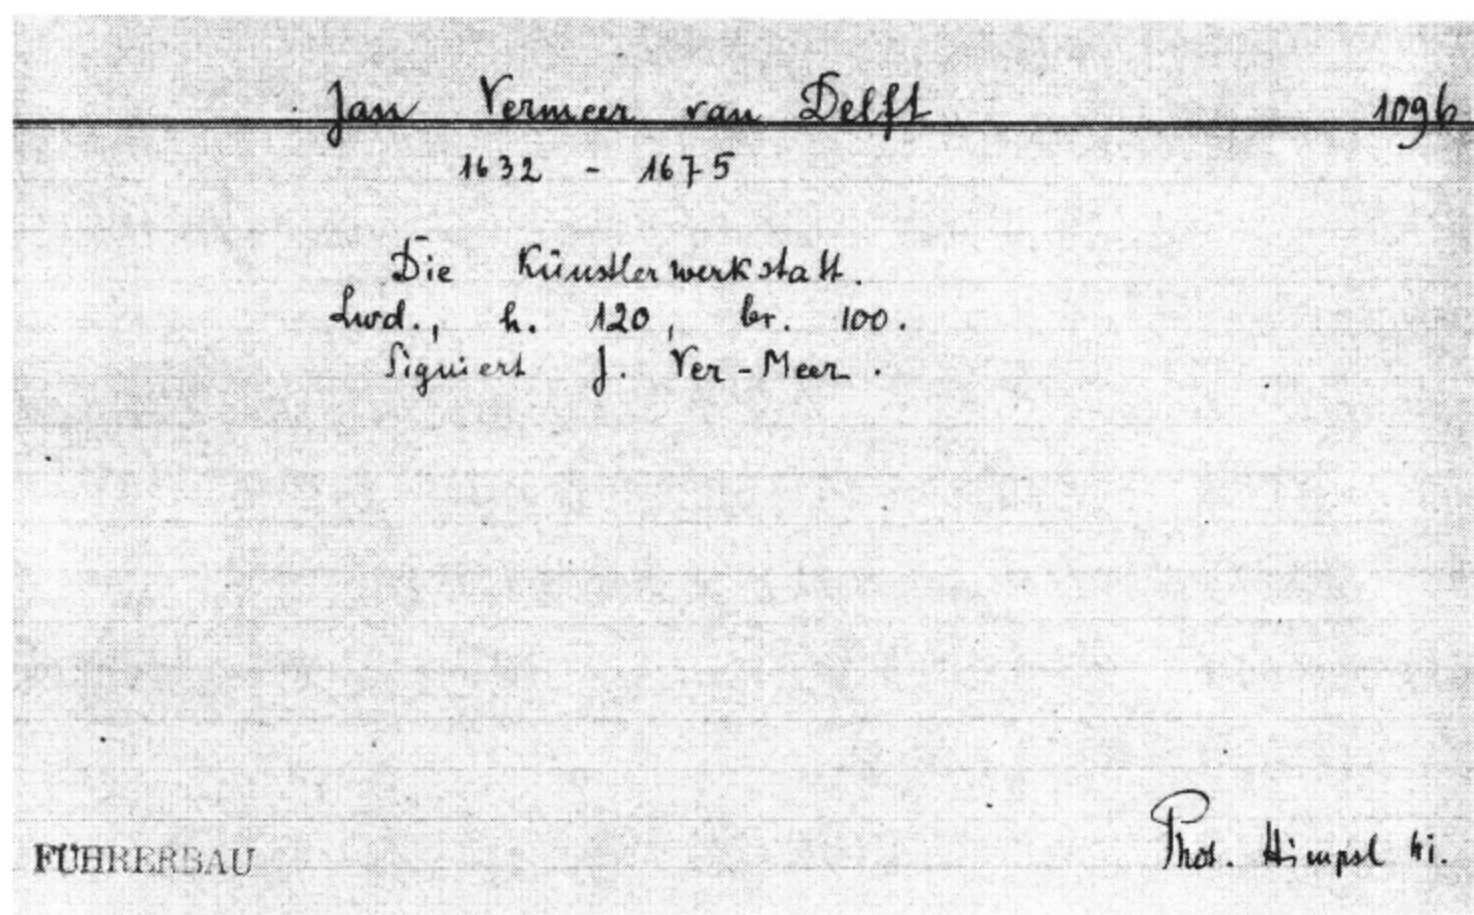 Jan Vermeer van Delft 1096
1632 - 1675
Die Künstlerwerkstatt.
Lwd., h. 120, br. 100.
Signiert J. Ver-Meer.
FÜHRERBAU
Phot. Himpsl